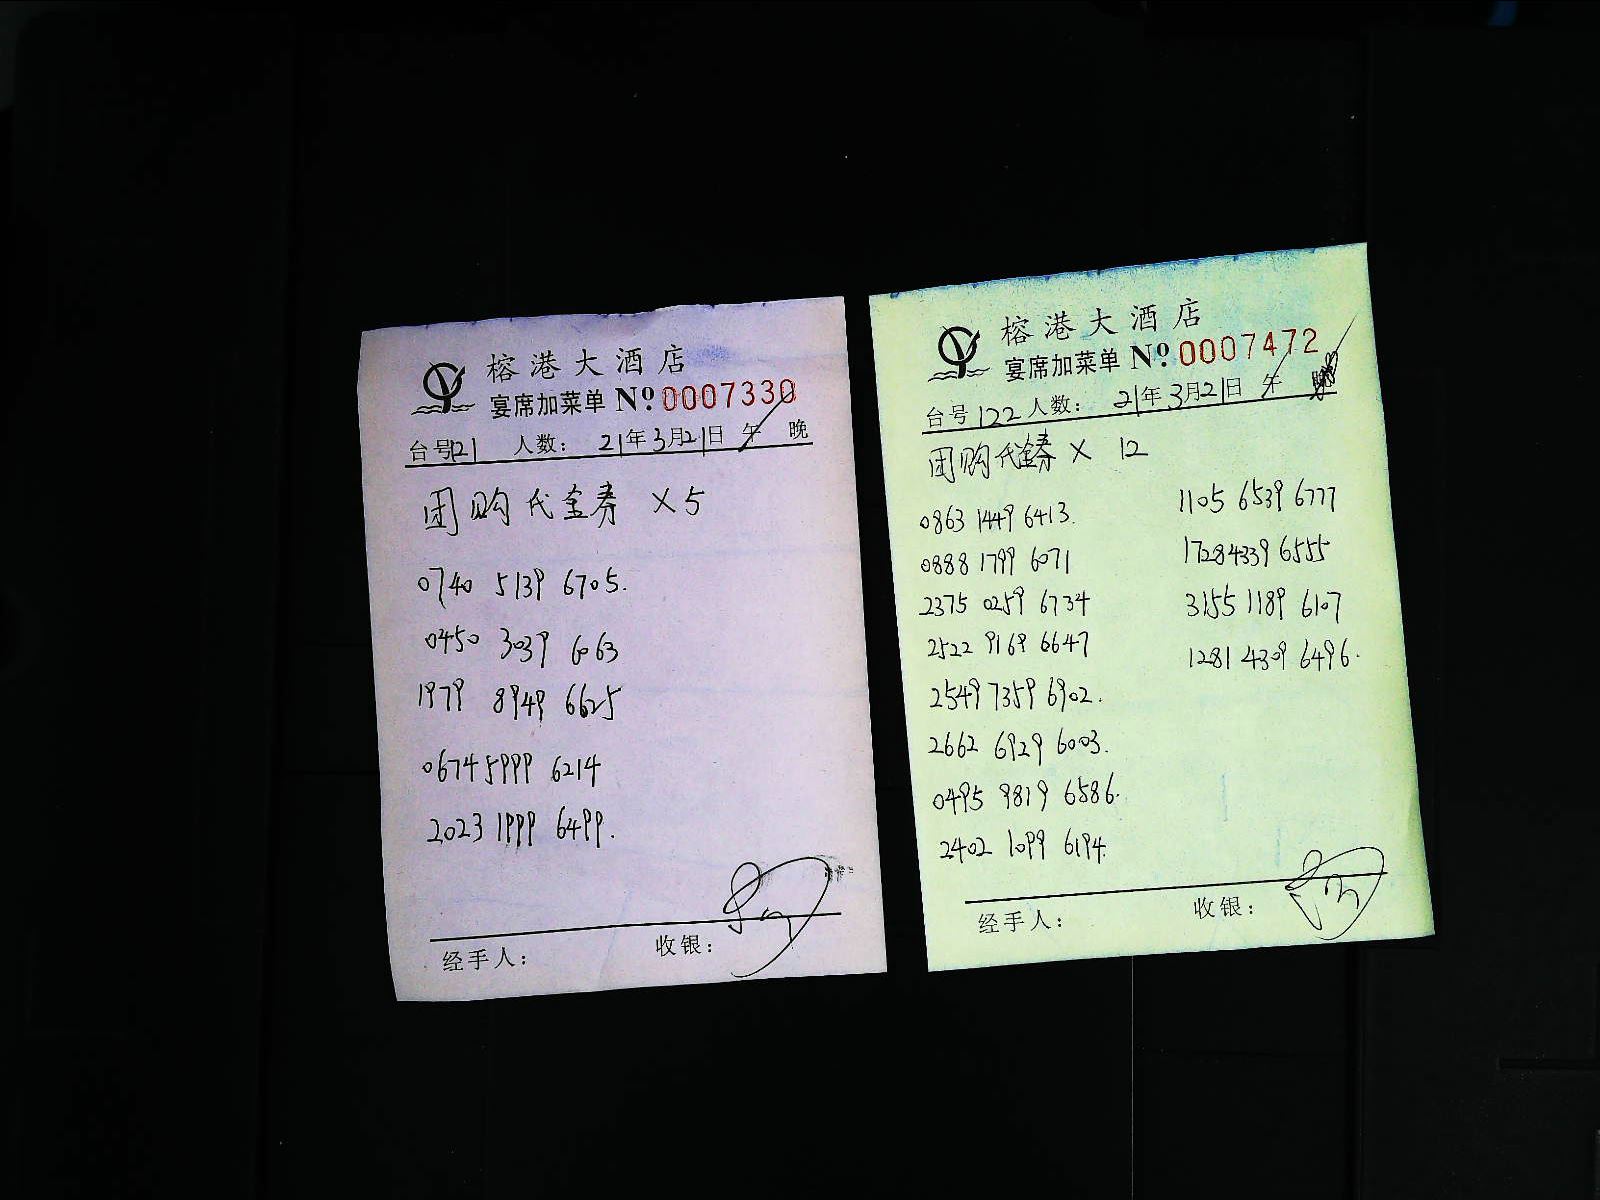 榕港大酒店
宴席加菜单 Nº 0007330
台号121 人数： 21年3月21日 午 晚
团购代金券 ×5
0740 5139 6705.
0450 3039 6063
1979 8949 6625
0674 5999 6214
2023 1999 6499.
经手人： 收银：
榕港大酒店
宴席加菜单 Nº 0007472
台号122 人数： 21年3月21日 午 晚
团购代金券 × 12
0863 1449 6413.
0888 1799 6071
2375 0259 6734
2522 9169 6647
2549 7359 6902.
2662 6929 6003.
0495 9819 6586.
2402 1099 6194.
1105 6539 6777
1728 4339 6555
3155 1189 6107
1281 4309 6496.
经手人： 收银：